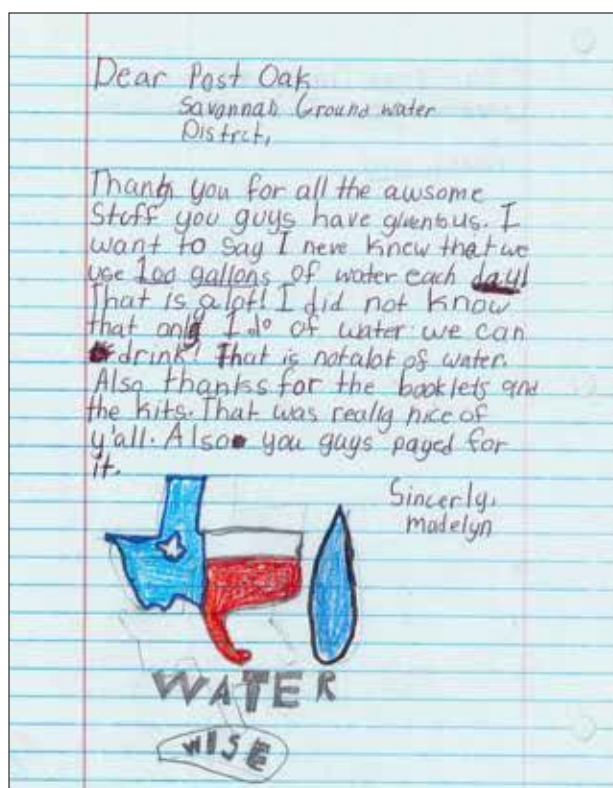 Dear Post Oak
Savannah Ground water
Distrct,
Thank you for all the awsome
Stoff you guys have givento us. I
want to say I neve knew that we
use 100 gallons of water each day!
That is a lot! I did not know
that only 1% of water we can
drink! That is notalot of water.
Also thanks for the booklets and
the kits. That was really nice of
y'all. Also you guys payed for
it.
Sincerly,
Madelyn
WATER
WISE